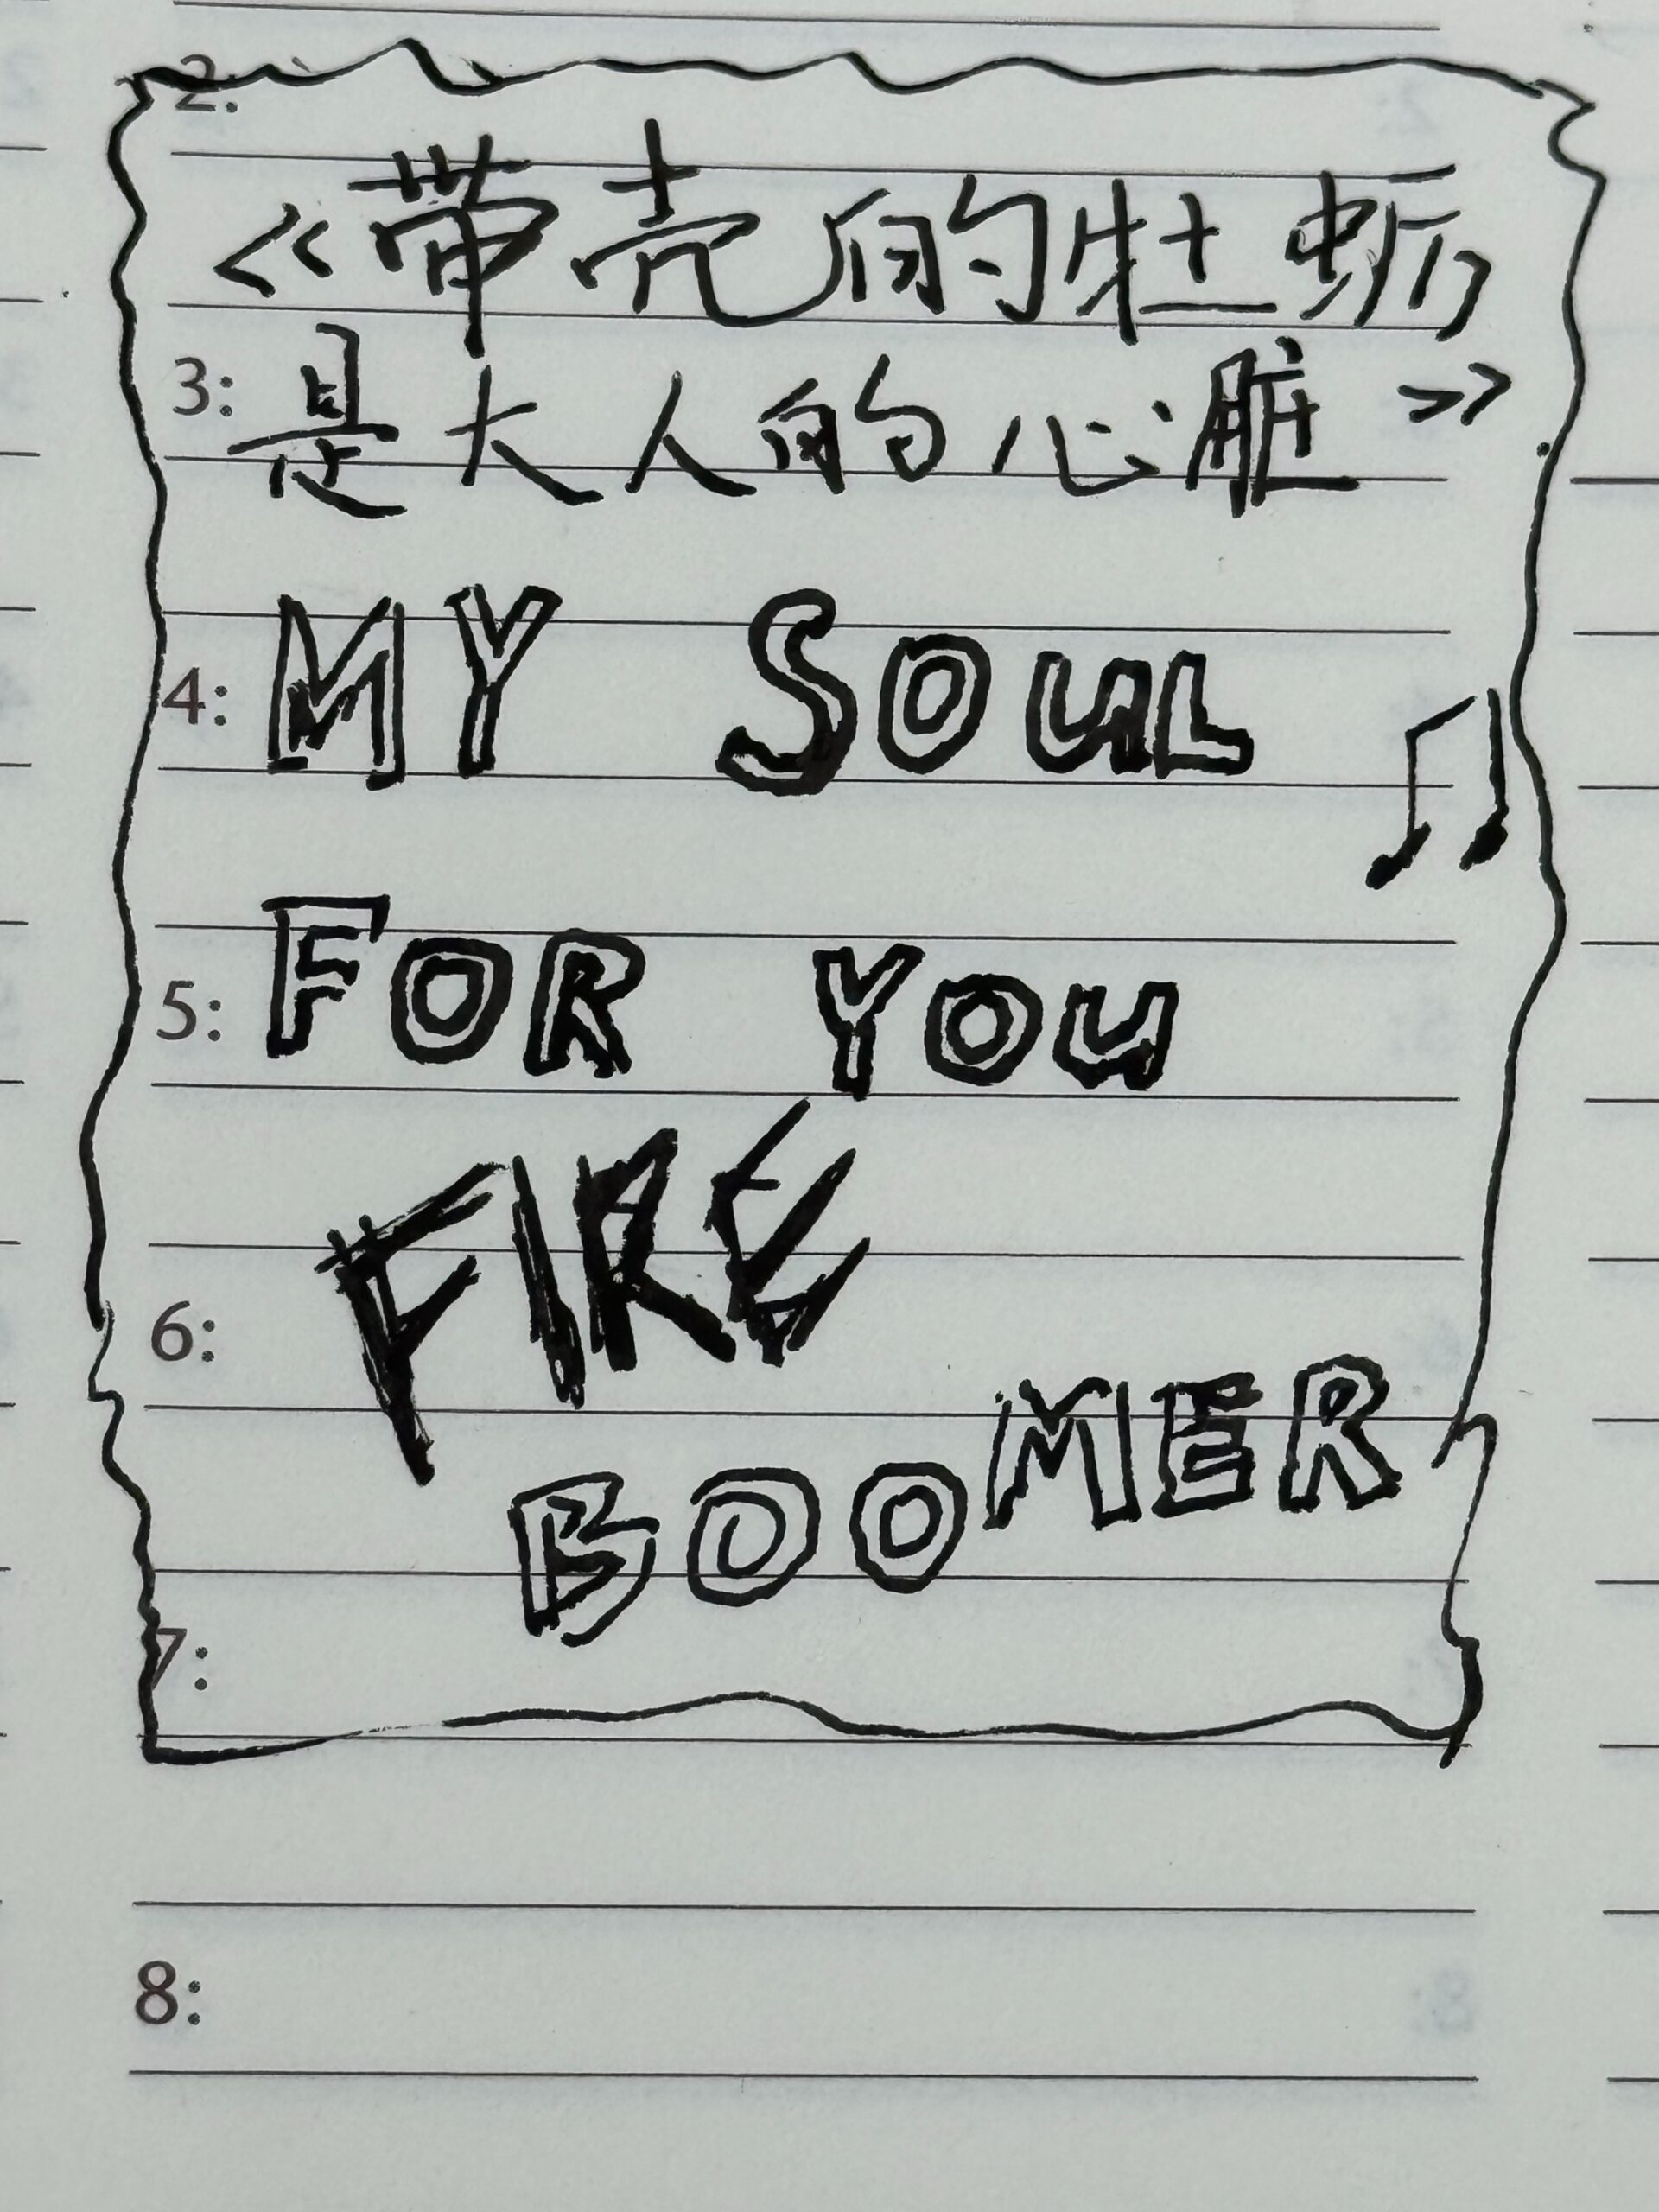 2:
《带壳的牡蛎
3: 是大人的心脏》
4: MY SOUL
5: FOR YOU
6: FIRE
BOOMER
7:
8: